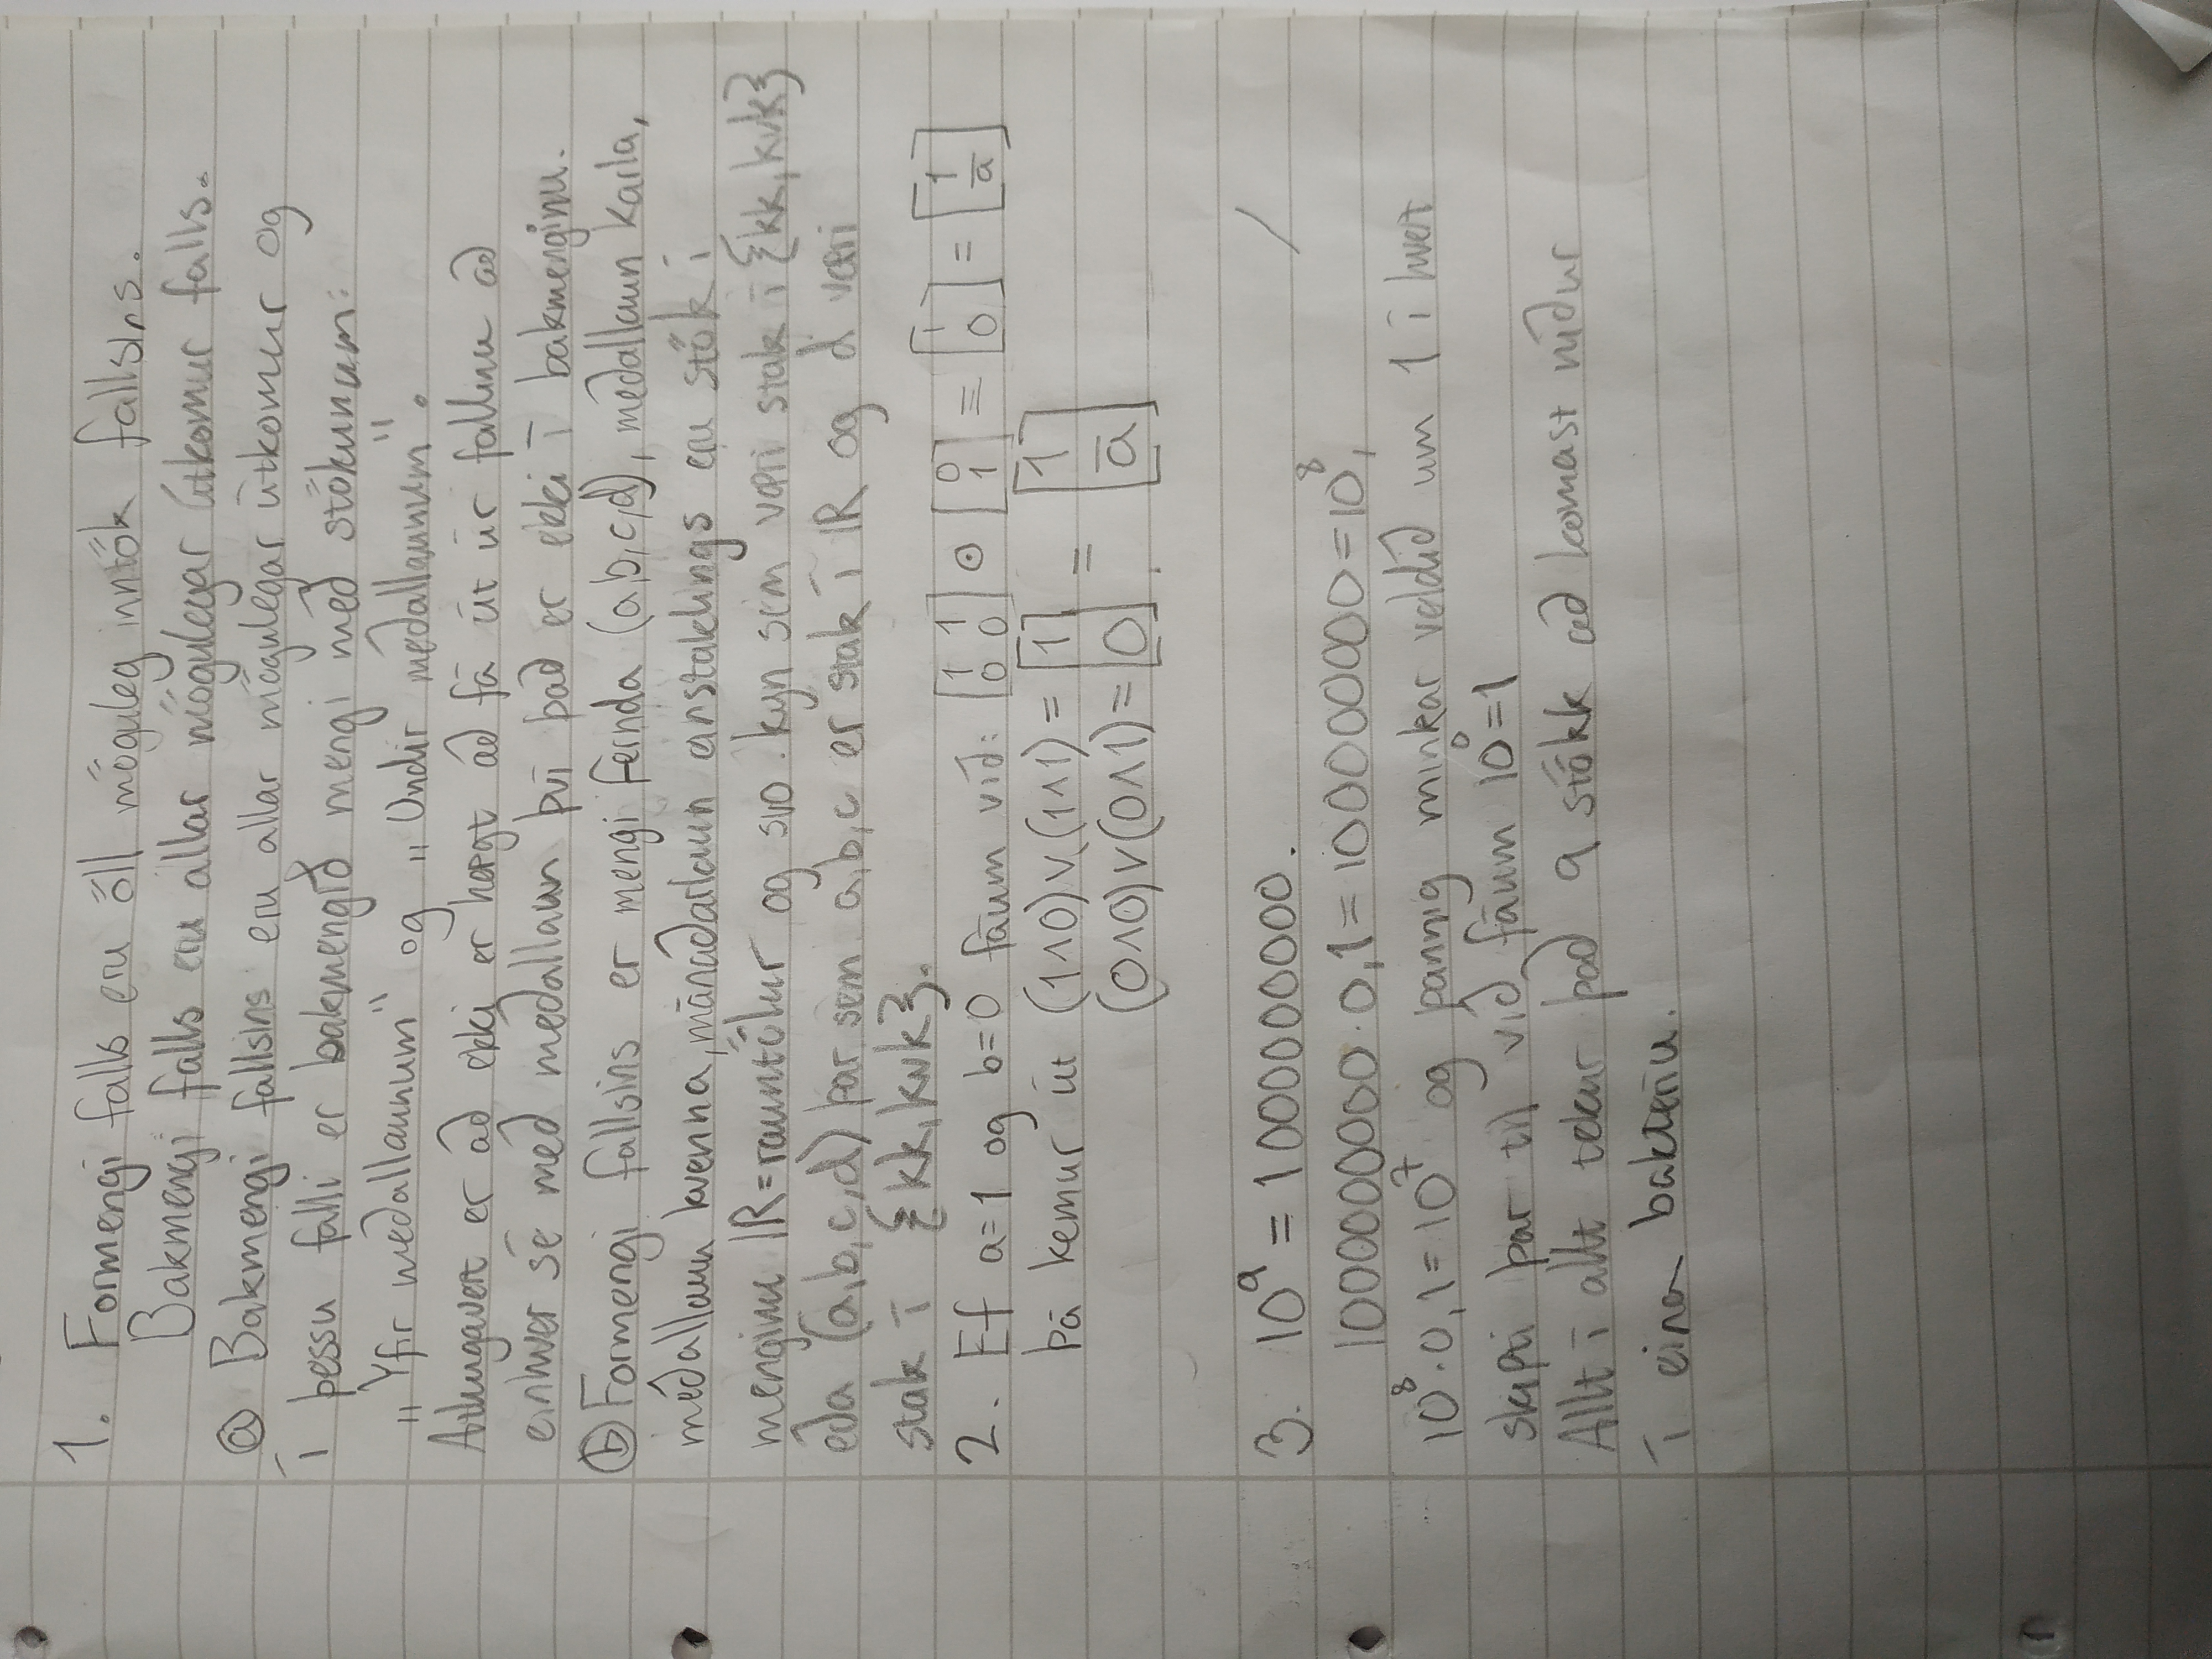 1. Formengi falls eru öll möguleg inntök fallsins.
Bakmengi falls eru allar mögulegar útkomur falls.
ⓐ Bakmengi fallsins eru allar mögulegar útkomur og
í þessu falli er bakmengið mengi með stökunum:
„Yfir meðallaunum" og „Undir meðallaunum".
Athugavert er að ekki er hægt að fá út úr fallinu að
einhver sé með meðallaun því það er ekki í bakmenginu.
ⓑ Formengi fallsins er mengi fernda (a,b,c,d), meðallaun karla,
meðallaun kvenna, mánaðarlaun einstaklings eru stök í
menginu ℝ=rauntölur og svo kyn sem væri stak í {kk, kvk}
eða (a,b,c,d) þar sem a,b,c er stak í ℝ og d væri
stak í {kk, kvk}.
2. Ef a=1 og b=0 fáum við: [1 1; 0 0] ⊙ [0; 1] = [1; 0] = [1; a̅]
Þá kemur út (1∧0)∨(1∧1) = [1] = [1]
(0∧0)∨(0∧1) = [0]. [a̅]
3. 10⁹ = 1000000000.
1000000000·0,1=100000000=10⁸,
10⁸·0,1=10⁷ og þannig minkar veldið um 1 í hvert
skipti þar til við fáum 10⁰=1
Allt í allt tekur það 9 stökk að komast niður
í eina bakteríu.